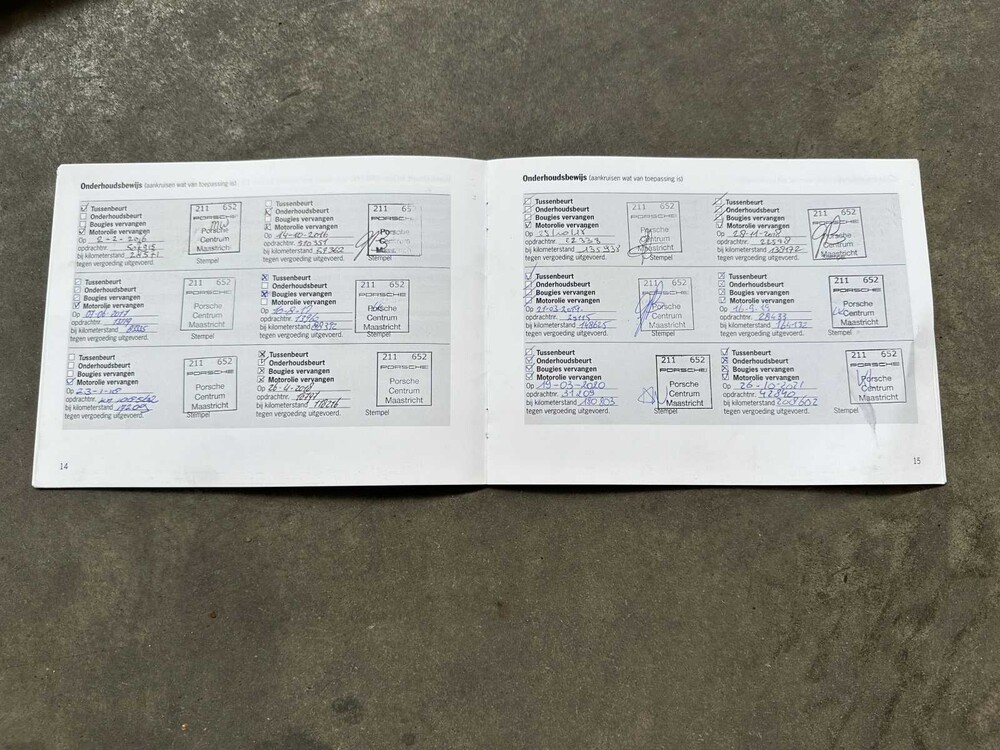 Onderhoudsbewijs (aankruisen wat van toepassing is)
Tussenbeurt
Onderhoudsbeurt
Bougies vervangen
Motorolie vervangen
Op 2-2-2016
opdrachtnr.
bij kilometerstand
tegen vergoeding uitgevoerd.
211 652
PORSCHE
Porsche
Centrum
Maastricht
Stempel
Tussenbeurt
Onderhoudsbeurt
Bougies vervangen
Motorolie vervangen
Op 14-10-2016
opdrachtnr.
bij kilometerstand
tegen vergoeding uitgevoerd.
211 65
PORSCHE
Stempel
Tussenbeurt
Onderhoudsbeurt
Bougies vervangen
Motorolie vervangen
Op 07-06-2017
opdrachtnr.
bij kilometerstand
tegen vergoeding uitgevoerd.
211 652
PORSCHE
Porsche
Centrum
Maastricht
Stempel
Tussenbeurt
Onderhoudsbeurt
Bougies vervangen
Motorolie vervangen
Op
opdrachtnr.
bij kilometerstand
tegen vergoeding uitgevoerd.
211 652
PORSCHE
Porsche
Centrum
Maastricht
Stempel
Tussenbeurt
Onderhoudsbeurt
Bougies vervangen
Motorolie vervangen
Op 23-1-18
opdrachtnr.
bij kilometerstand
tegen vergoeding uitgevoerd.
211 652
PORSCHE
Porsche
Centrum
Maastricht
Stempel
Tussenbeurt
Onderhoudsbeurt
Bougies vervangen
Motorolie vervangen
Op 26-4-2018
opdrachtnr.
bij kilometerstand
tegen vergoeding uitgevoerd.
211 652
PORSCHE
Porsche
Centrum
Maastricht
Stempel
14
Onderhoudsbewijs (aankruisen wat van toepassing is)
Tussenbeurt
Onderhoudsbeurt
Bougies vervangen
Motorolie vervangen
Op
opdrachtnr. 22333
bij kilometerstand 135938
tegen vergoeding uitgevoerd.
211 652
PORSCHE
Porsche
Centrum
Maastricht
Stempel
Tussenbeurt
Onderhoudsbeurt
Bougies vervangen
Motorolie vervangen
Op 29-11-2018
opdrachtnr.
bij kilometerstand 139172
tegen vergoeding uitgevoerd.
211 652
PORSCHE
Porsche
Centrum
Maastricht
Stempel
Tussenbeurt
Onderhoudsbeurt
Bougies vervangen
Motorolie vervangen
Op 21-03-2019
opdrachtnr.
bij kilometerstand 148625
tegen vergoeding uitgevoerd.
211 652
PORSCHE
Porsche
Centrum
Maastricht
Stempel
Tussenbeurt
Onderhoudsbeurt
Bougies vervangen
Motorolie vervangen
Op 16-9-19
opdrachtnr. 28433
bij kilometerstand
tegen vergoeding uitgevoerd.
211 652
PORSCHE
Porsche
Centrum
Maastricht
Stempel
Tussenbeurt
Onderhoudsbeurt
Bougies vervangen
Motorolie vervangen
Op 19-03-2020
opdrachtnr. 31209
bij kilometerstand 180803
tegen vergoeding uitgevoerd.
211 652
PORSCHE
Porsche
Centrum
Maastricht
Stempel
Tussenbeurt
Onderhoudsbeurt
Bougies vervangen
Motorolie vervangen
Op 26-10-2021
opdrachtnr. 42840
bij kilometerstand 208602
tegen vergoeding uitgevoerd.
211 652
PORSCHE
Porsche
Centrum
Maastricht
Stempel
15